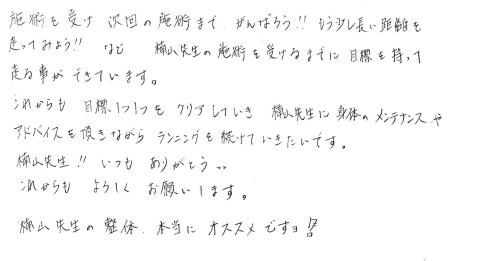 施術を受け 次回の施術まで がんばろう!! もう少し長い距離を
走ってみよう!! など 楠山先生の施術を受けるまでに目標を持って
走る事ができています。
これからも 目標1つ1つを クリアしていき 楠山先生に身体のメンテナンスや
アドバイスを頂きながら ランニングを続けていきたいです。
楠山先生!! いつも ありがとう..
これからも よろしく お願いします。
楠山先生の整体、本当に オススメですヨ!